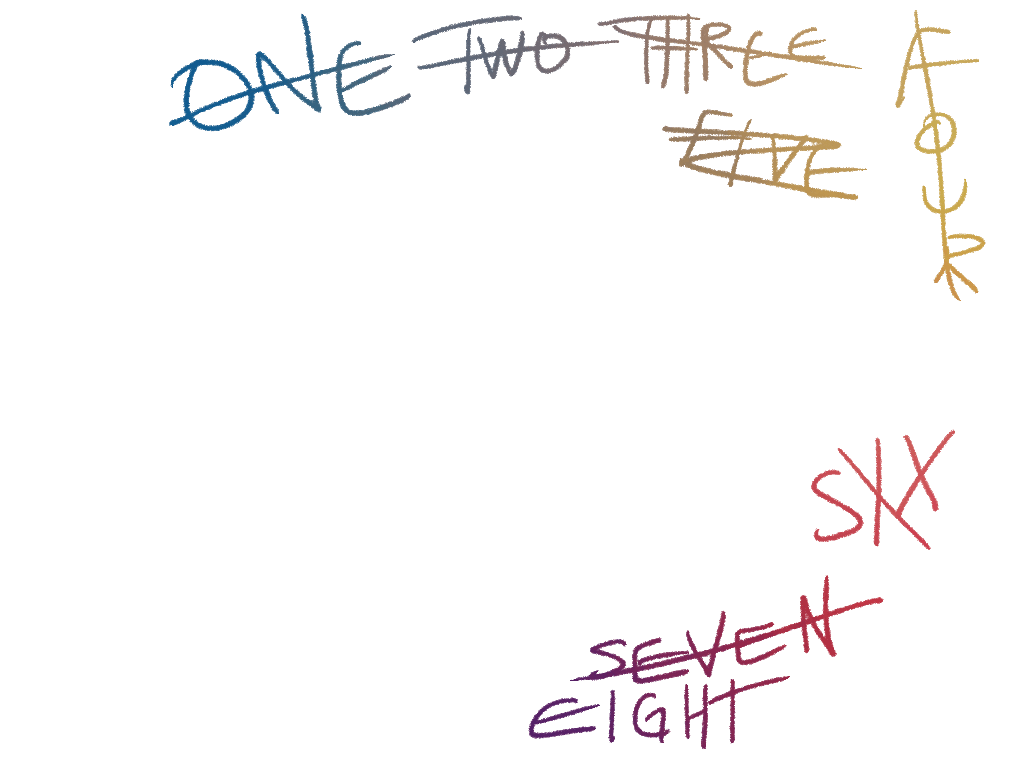 ONE TWO THREE
FOUR
FIVE
SIX
SEVEN
EIGHT